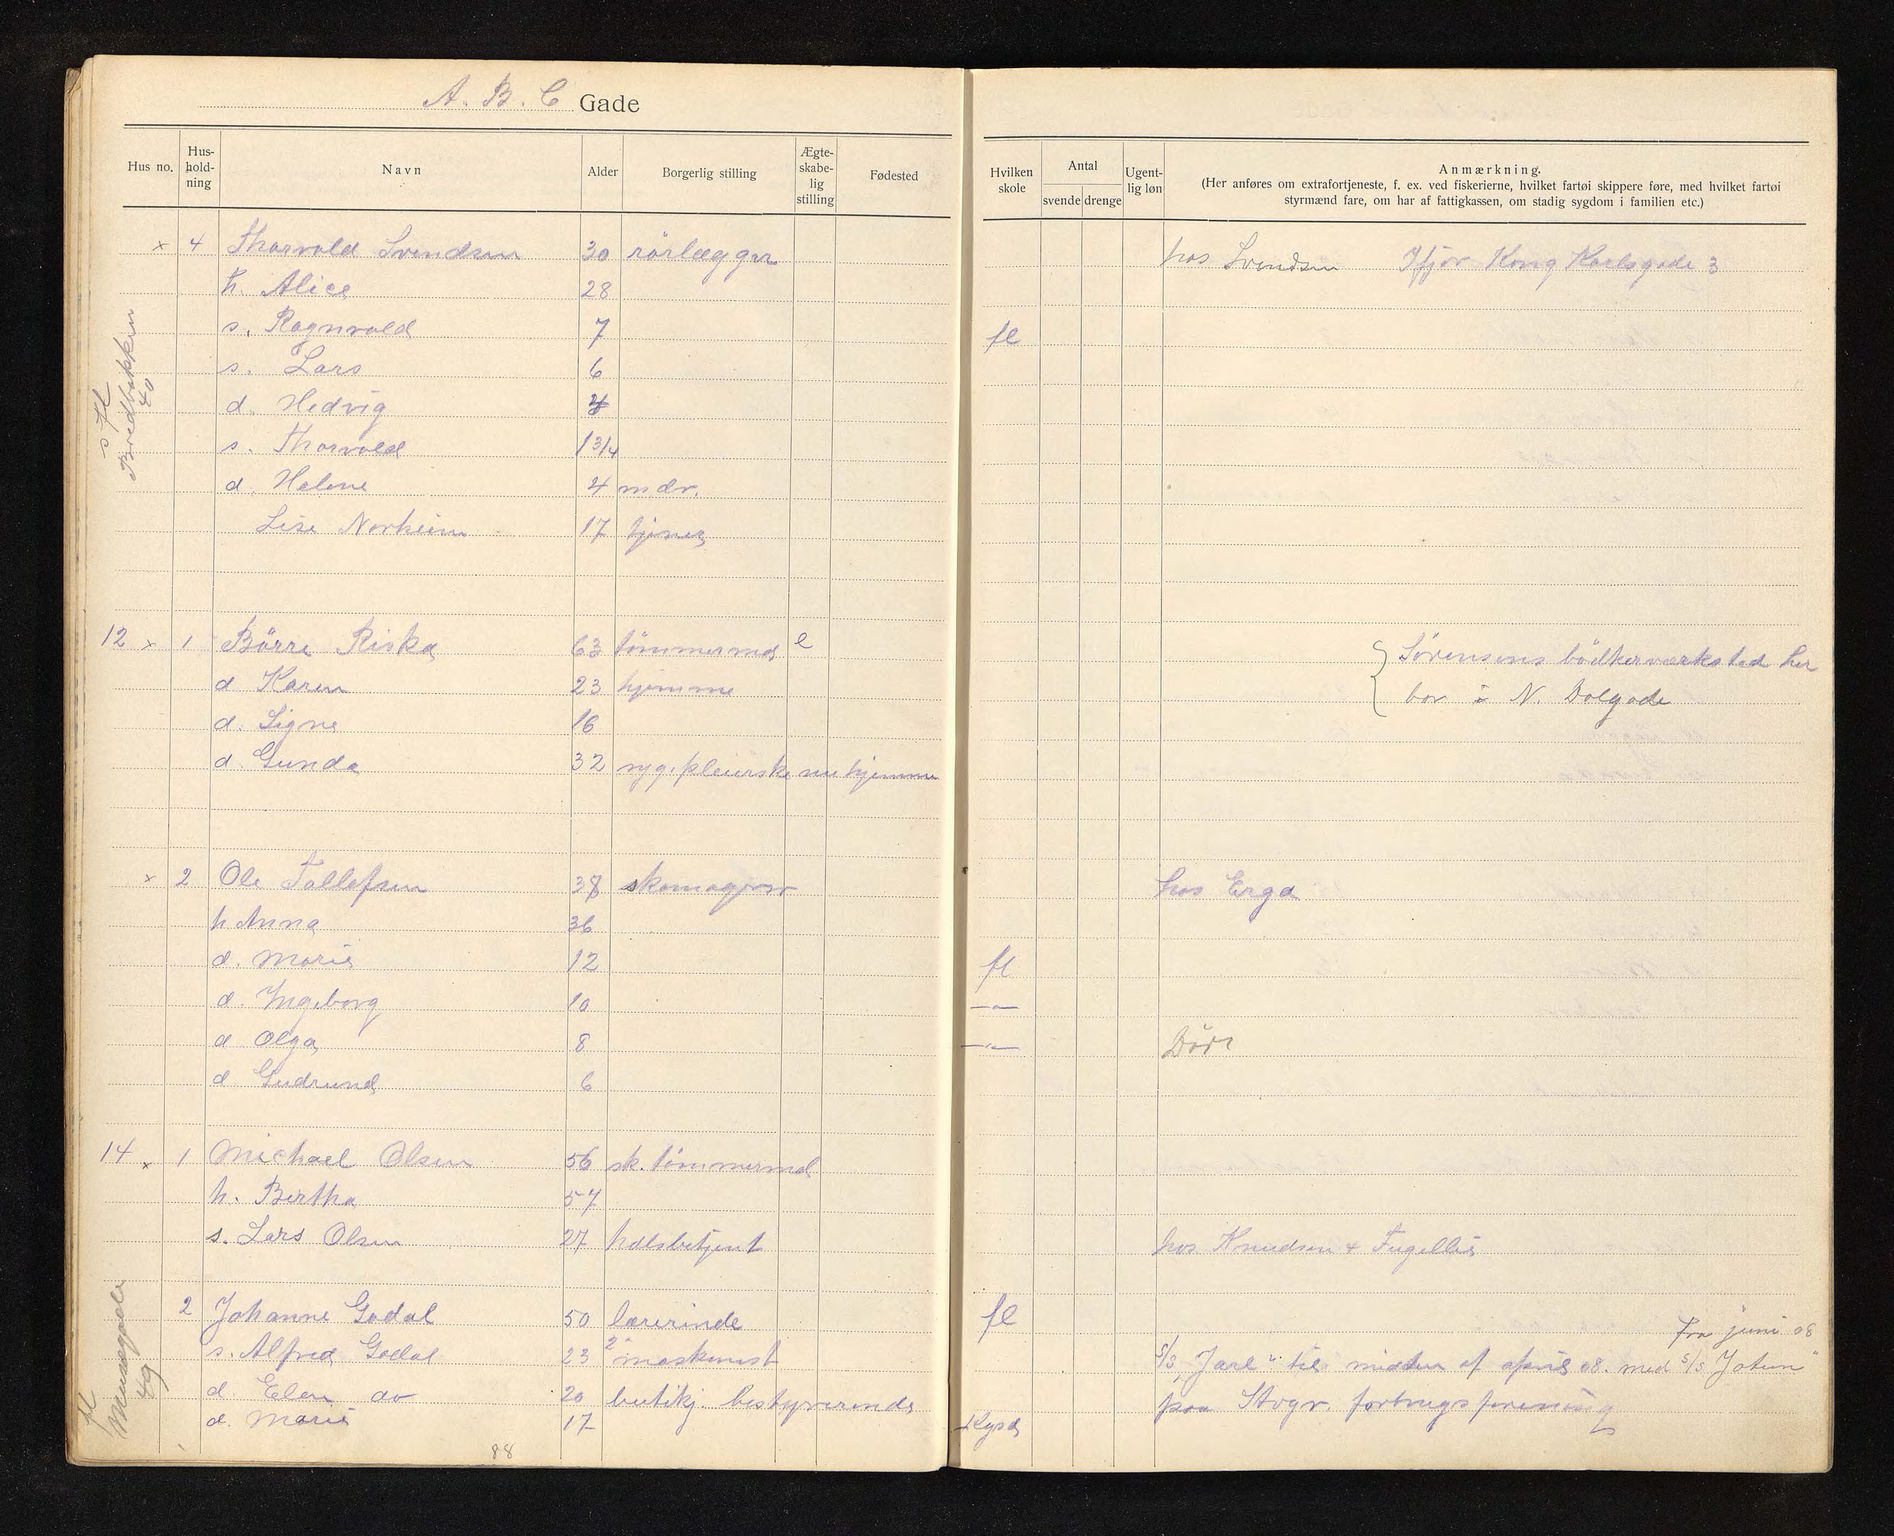 A. B. C Gade
Hus no. Hus-hold-ning Navn Alder Borgerlig stilling Ægte-skabe-lig stilling Fødested Hvilken skole Antal svende drenge Ugent-lig løn Anmærkning.
(Her anføres om extrafortjeneste, f. ex. ved fiskerierne, hvilket fartøi skippere føre, med hvilket fartøi
styrmænd fare, om har af fattigkassen, om stadig sygdom i familien etc.)
x 4 Thorvald Svendsen 30 rörlægger hos Svendsen Ifjor Kong Karlsgade 3
h. Alice 28
s. Ragnvald 7 fl
s. Lars 6
d. Hedvig 4
s. Thorvald 1 3/4
d. Helene 4 mdr.
Lise Norheim 17 tjener
s fl Bredbakken 40
12 x 1 Börre Riska 63 tömmermd e Sørensens bödkerværksted her
d Karen 23 hjemme bor i N. Dolgade
d. Signe 16
d. Gunda 32 syg.pleierske nu hjemme
x 2 Ole Tollefsen 38 skomager hos Erga
h Anna 36
d. Marie 12 fl
d. Ingeborg 10 —"—
d Olga 8 —"— Död
d Gudrund 6
14 x 1 Michael Olsen 56 sk. tömmermd
h. Bertha 57
s. Lars Olsen 27 hdlsbetjent hos Knudsen & Fugellie
2 Johanne Godal 50 lærerinde fl
fra juni 08
s. Alfred Godal 23 2' maskinist S/S "Jarl" til midten af april 08. med S/S "Jotun"
d Elen av 20 butikj. bestyrerinde paa Stvgr. forbrugsforening
d. Marie 17 Kgsd
fl
49
88